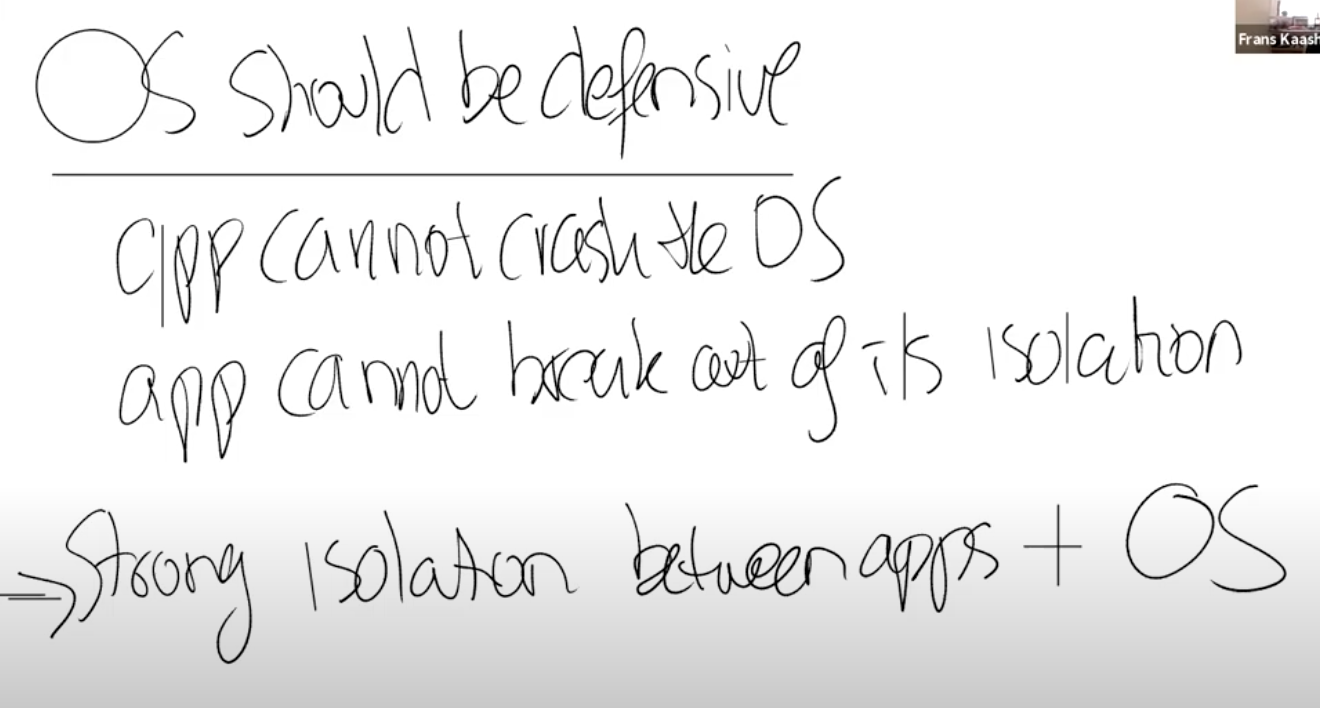 OS should be defensive
Frans Kaash
app cannot crash the OS
app cannot break out of its isolation
⇒ Strong isolation between apps + OS